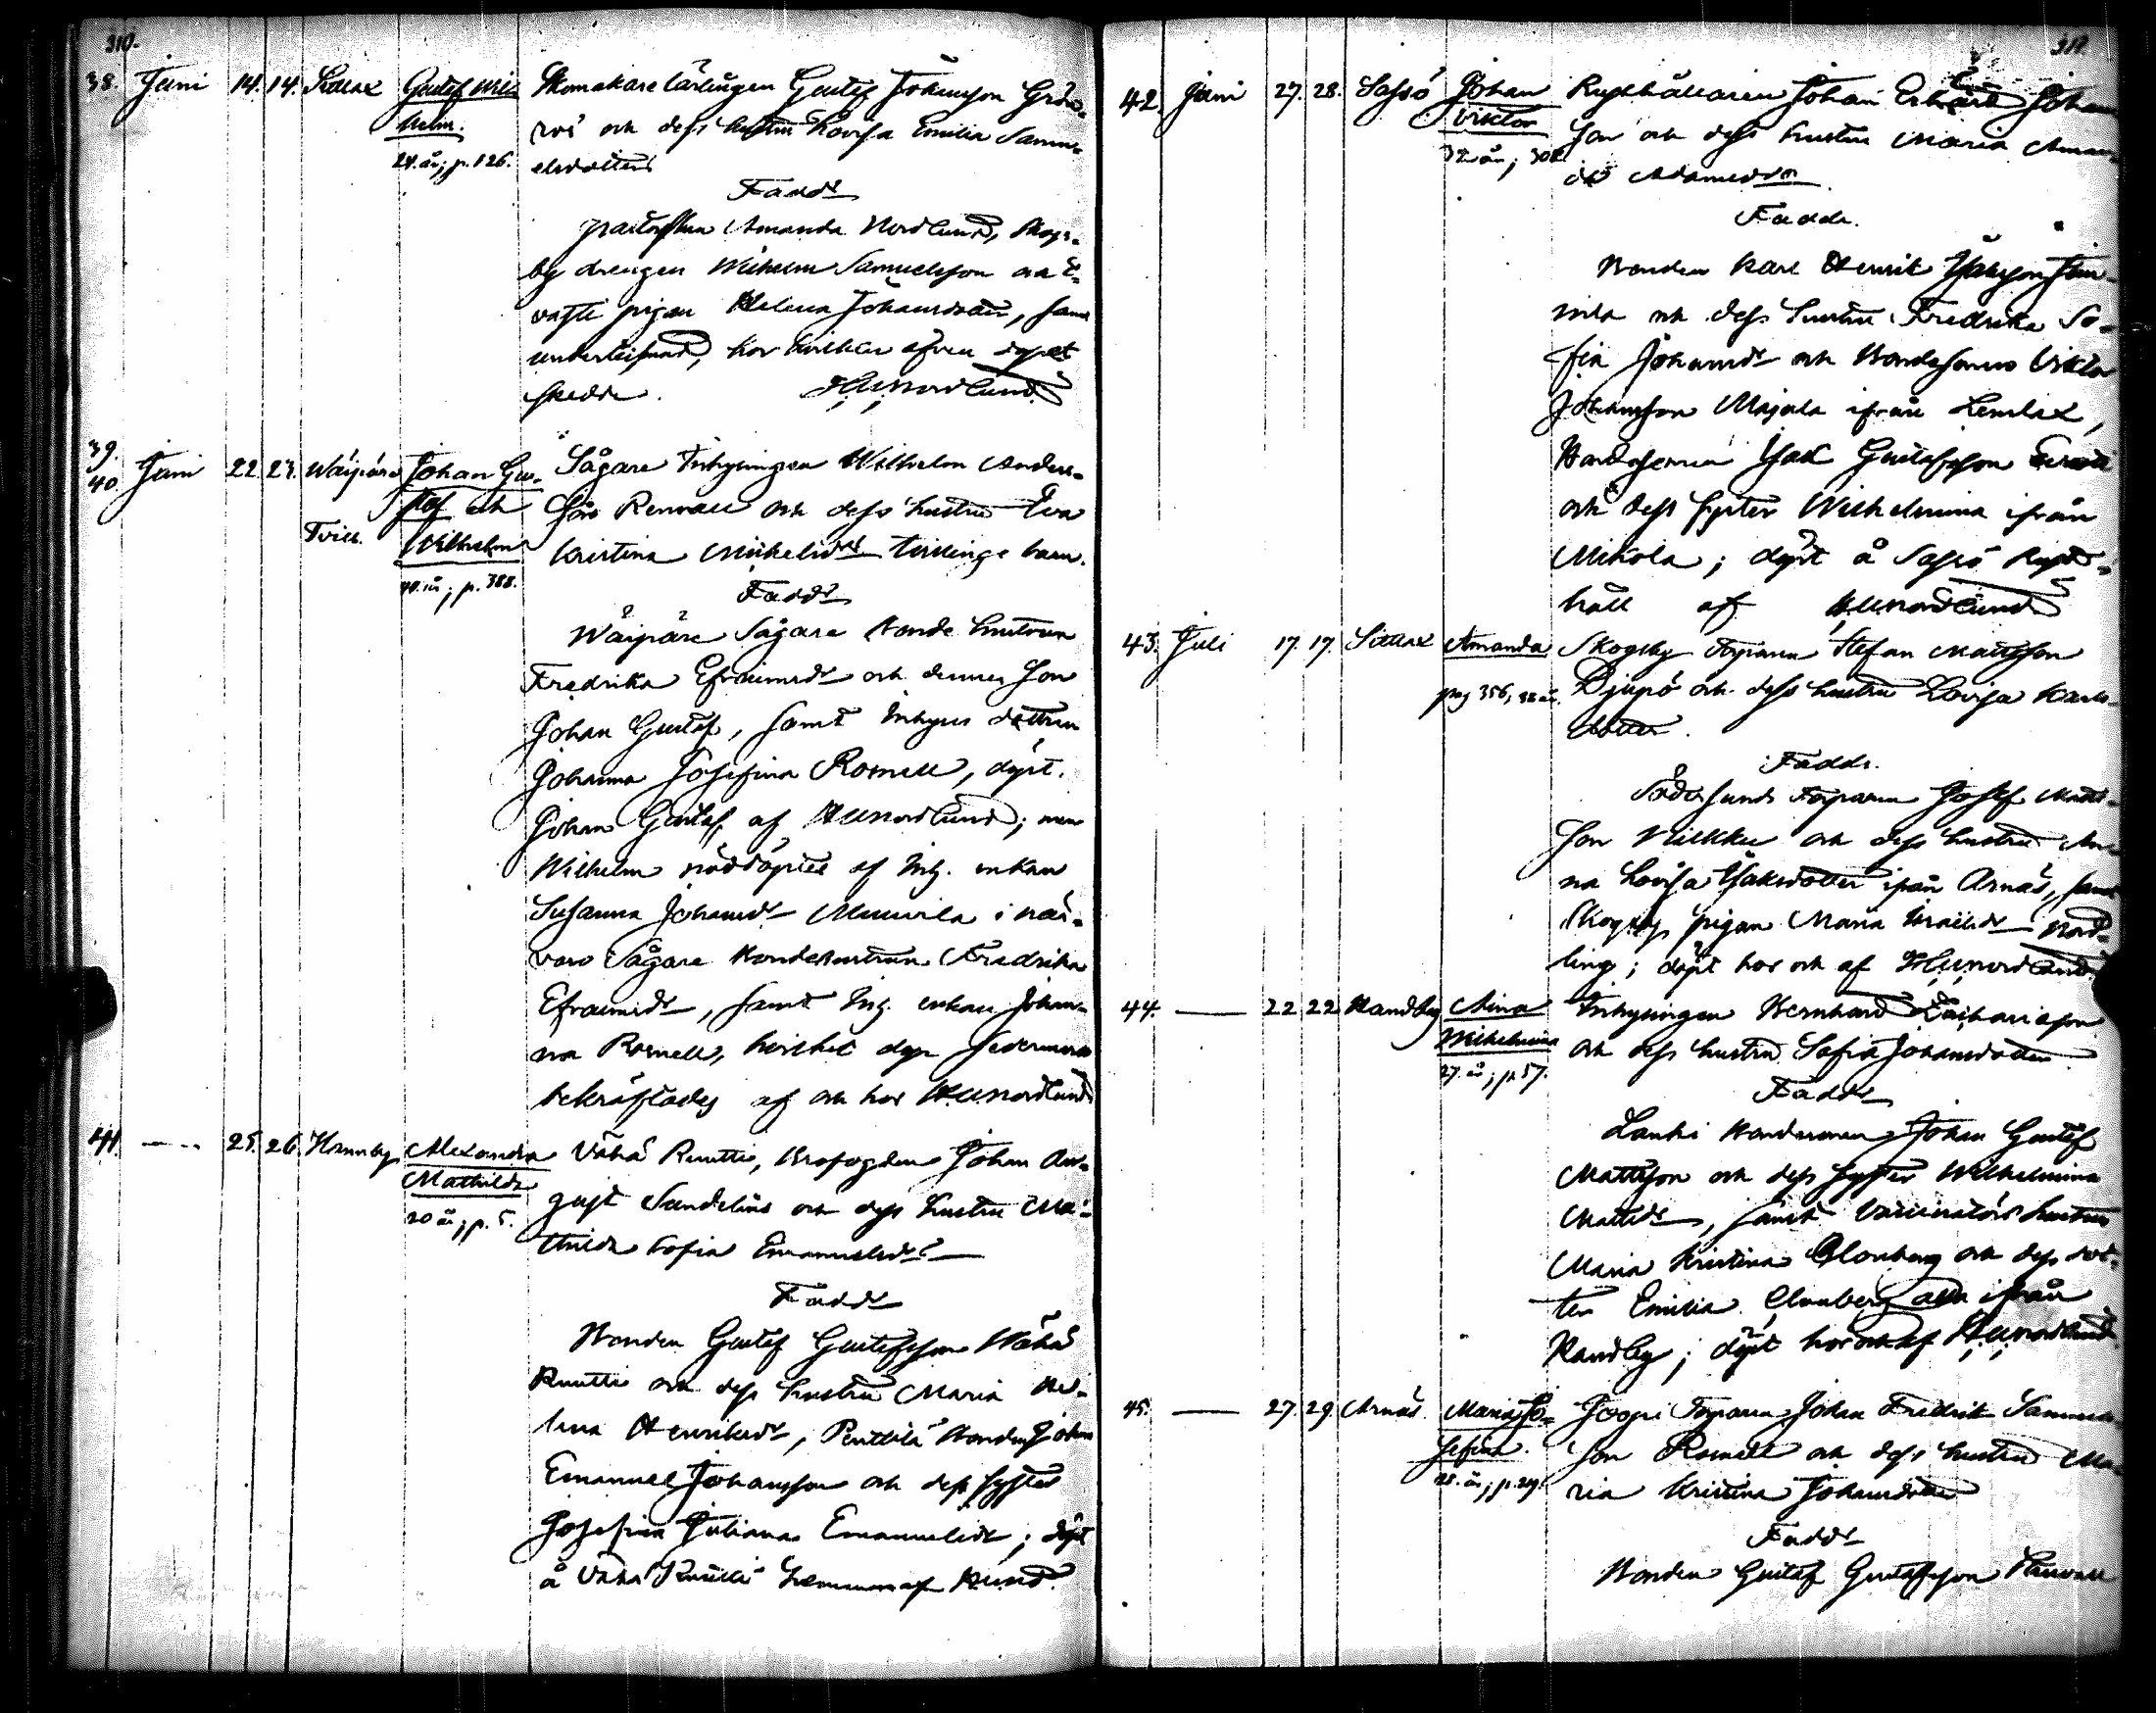 310.
38. Juni 14. 14. Sittlax Gustef Wil-
helm.
24. år; p. 126.
Skomakarelärlingen Gustef Johansson Grön-
roi och dess hustru Lovisa Emilia Samu-
elsdotter
Fadd.
Amanda Nordlund, Skogs-
by drengen Wilhelm Samuelsson och
pigan Helena Johansdotter, samt
undertecknad, hos hvilken äfven dopet
skedde. Nordlund
39.
40. Juni 22. 23. Wäipäre Johan Gu-
staf och
Tvill. Wilhelm
40. år; p. 388.
Sågare Inhysingen Wilhelm Anders-
son Renvall och dess hustru Eva
Kristina Mikelsdr tvillinge barn.
Fadd.
Wäipäre Sågare bonde hustrun
Fredrika Efraimsdr och dennes son
Johan Gustaf, samt Inhyses dottren
Johanna Josefina Rosnell, döpt.
Johan Gustaf af Nordlund; men
Wilhelm nöddöptes af Inh. enkan
Susanna Johansdr i när-
varo Sågare bondehustrun Fredrika
Efraimsdr, samt Inh. enkan Johan-
na Rosnell, hvilket dop sedermera
bekräftades af och hos Nordlund
41. — 25. 26. Hannby Alexandra
Mathilda
20 år; p. 5.
Vähä Ruutti, Brofogden Johan Au-
gust Sandelius och dess hustru Ma-
thilda Sofia Emanuelsdr
Fadd.
Bonden Gustef Gustefsson Wähä
Ruutti och dess hustru Maria He-
lena Henriksdr, Penttilä bonden Johan
Emanuel Johansson och dess syster
Josefina Juliana Emanuelsdr; döpt
å Vähä Ruutti hemman af
311
42. Juni 27. 28. Sassö Johan
Viktor
32 år; 302
Rusthållaren Johan Erland Johan-
son och dess hustru Maria Aman-
da Adamsdr
Fadd.
Bonden Karl Henrik Isaksson
och dess hustru Fredrika So-
fia Johansdr och Bondesonen Viktor
Johansson Majala ifrån Lemlax,
Bondesonen Isak Gustafsson
och dess syster Wilhelmina ifrån
Mikola; döpt å Sassö Rust-
håll af Nordlund
43. Juli 17. 17. Sittlax Amanda
pag 356, 38 år.
Skogsby Torparen Stefan Mattsson
Djupö och dess hustru Lovisa Karls-
dotter.
Fadd.
Södersunds Torparen Josef Matts-
son och dess hustru An-
na Lovisa Isaksdotter ifrån Arnäs, samt
Skogsby pigan Maria Israelsdr Nord-
ling; döpt hos och af Nordlund
44. — 22 22 Kandby Mina
Wilhelmina
27. år; p. 57.
Inhysingen Bernhard Zachariasson
och dess hustru Sofia Johansdotter
Fadd.
Lauki bondesonen Johan Gustef
Mattsson och dess syster Wilhelmina
Mattsdr, samt Vaccinatörs hustrun
Maria Kristina Clonberg och dess dot-
ter Emilia Clonberg alla ifrån
Kandby; döpt hos och af Nordlund
45. — 27. 29. Arnäs Maria Jo-
sefina.
28. år; p. 29.
Torparen Johan Fredrik Samuels-
son Rosnell och dess hustru Ma-
ria Kristina Johansdotter
Fadd.
Bonden Gustaf Gustafsson